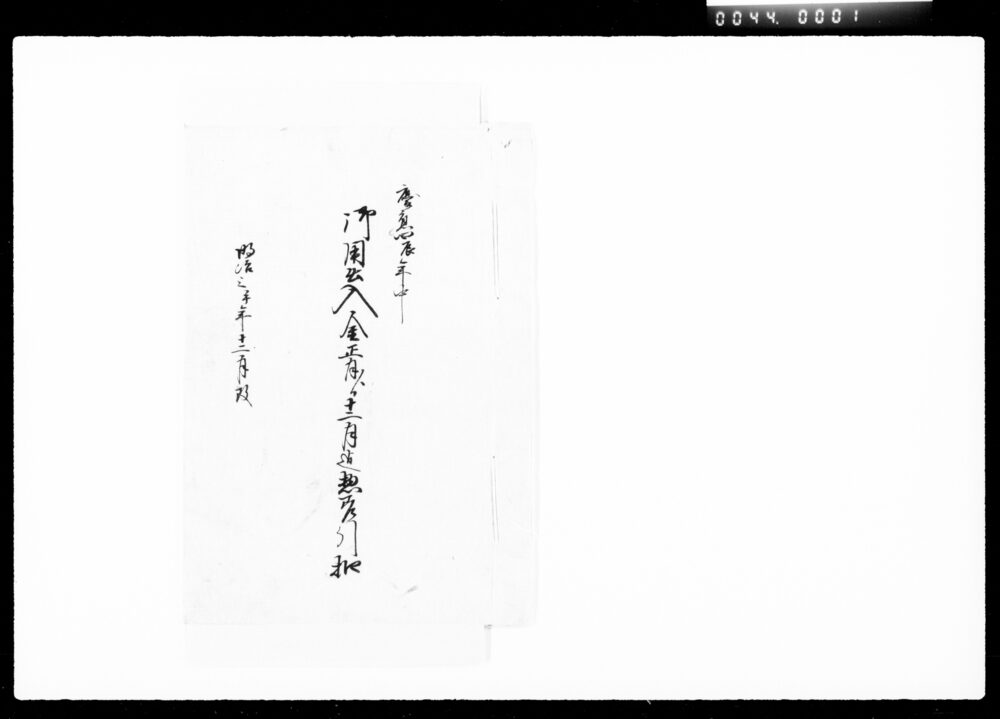 0044.0001
慶應辰年中
御用出入金正月ゟ十二月迄惣差引
明治三午年十二月改